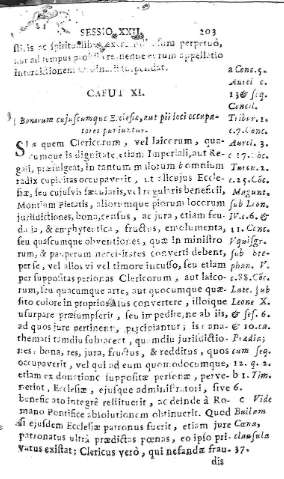 SESSIO XXII. 203
CAPUT XI.
Bonorum cujuscumque Ecclesiæ, aut pii loci occupatores
puniuntur.
SI quem Clericorum, vel laicorum, quacumque
is dignitate etiam Imperiali, aut Regali,
præfulgeat, in tantum malorum omnium
radix cupiditas occupaverit, ut alicujus Ecclesiæ,
seu cujusvis sæcularis, vel regularis beneficii,
Montium Pietatis, aliorumque piorum locorum
jurisdictiones, bona, census, ac jura, etiam feudalia,
& emphyteutica, fructus, emolumenta,
seu quascumque obventiones, quæ in ministrorum,
& pauperum necessitates converti debent,
per se, vel alios vi vel timore incusso, seu etiam
per suppositas personas Clericorum, aut laicorum,
seu quacumque arte, aut quocumque quæsito
colore in proprios usus convertere, illosque
usurpare præsumpserit, seu impedire, ne ab iis,
ad quos jure pertinent, percipiantur; is anathemati
tamdiu subjaceat, quamdiu jurisdictiones,
bona, res, jura, fructus, & redditus, quos
occupaverit, vel qui ad eum quomodocumque,
etiam ex donatione suppositæ personæ, pervenerint,
Ecclesiæ, ejusque administratori, sive
beneficiato integrè restituerit, ac deinde à Romano
Pontifice absolutionem obtinuerit. Quod
si ejusdem Ecclesiæ patronus fuerit, etiam jure
patronatus ultrà prædictas pœnas, eo ipso privatus
existat: Clericus verò, qui nefandæ fraudis
a Conc. 5.
Aurel. c.
13 & seq.
Concil.
Tribur.
c. 7. Conc.
Aurel. 3.
Turon. 2.
c. 25. Conc.
Magunt.
sub Leon.
IV. c. 6. &
11. Conc.
Aquisgr.
sub Stephan. V.
c. 88. Conc.
Late. sub
Leone X.
& sess. 6.
&
cum seq.
12. q. 2.
b 1. Tim.
6.
c Vide
Bullam
Cœna,
clausula
37.